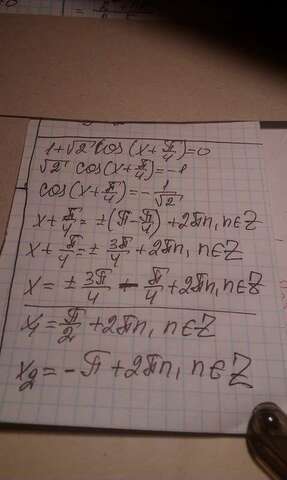 1+√2 cos(x+π/4)=0
√2 cos(x+π/4)=-1
cos(x+π/4)=-1/√2
x+π/4=±(π-π/4)+2πn, n∈Z
x+π/4=±3π/4+2πn, n∈Z
x=±3π/4-π/4+2πn, n∈Z
x1=π/2+2πn, n∈Z
x2=-π+2πn, n∈Z